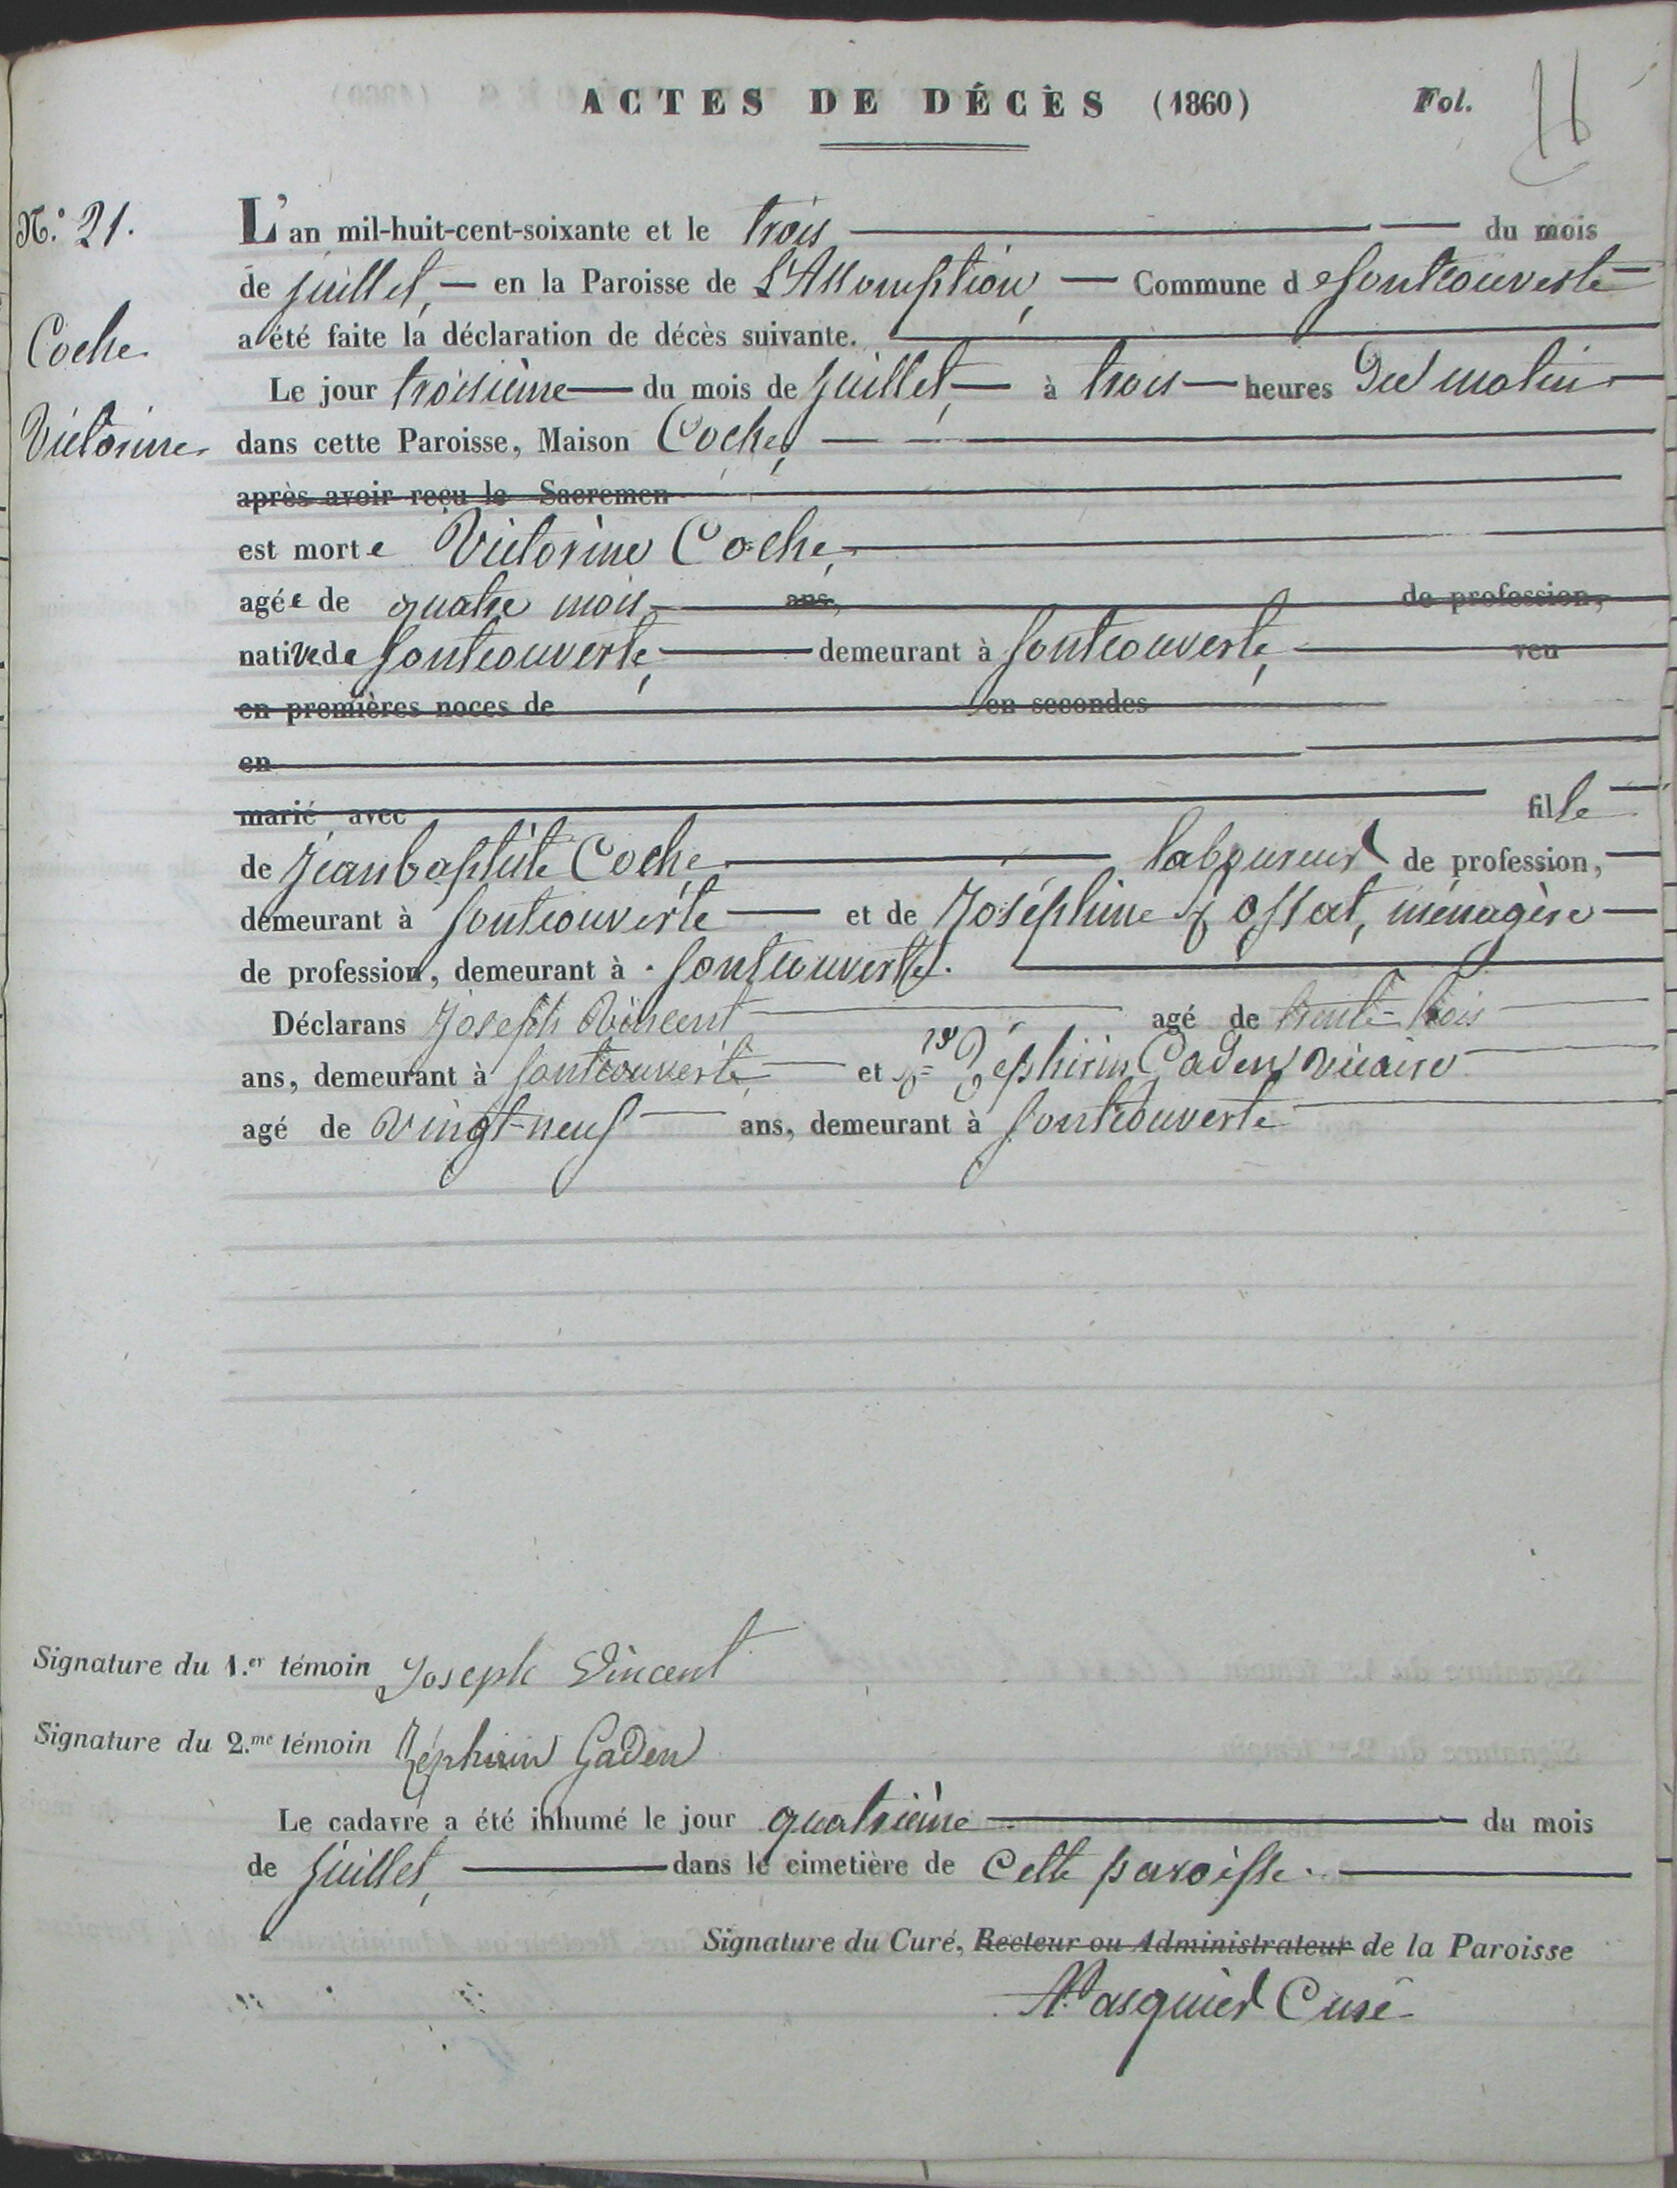 ACTES DE DÉCÈS (1860) Fol.
N.° 21.
Coche
Victorine
L'an mil-huit-cent-soixante et le trois du mois
de juillet, en la Paroisse de L'Assomption, Commune de fontcouverte
a été faite la déclaration de décès suivante.
Le jour troisième du mois de juillet, à trois heures Du matin
dans cette Paroisse, Maison Coche,
après avoir reçu le Sacremen
est morte Victorine Coche,
agée de quatre mois, ans, de profession,
native de fontcouverte, demeurant à fontcouverte, veu
en premières noces de en secondes
en
marié avec fille
de Jeanbaptiste Coche laboureur de profession,
demeurant à fontcouverte et de Joséphine, ménagère
de profession, demeurant à fontcouverte.
Déclarans Joseph Vincent agé de trente-trois
ans, demeurant à fontcouverte et Zéphirin Gaden vicaire
agé de vingt-neuf ans, demeurant à fontcouverte
Signature du 1.er témoin Joseph Vincent
Signature du 2.me témoin Zéphirin Gaden
Le cadavre a été inhumé le jour quatrième du mois
de juillet, dans le cimetière de cette paroisse.
Signature du Curé, Recteur ou Administrateur de la Paroisse
Pasquier Curé